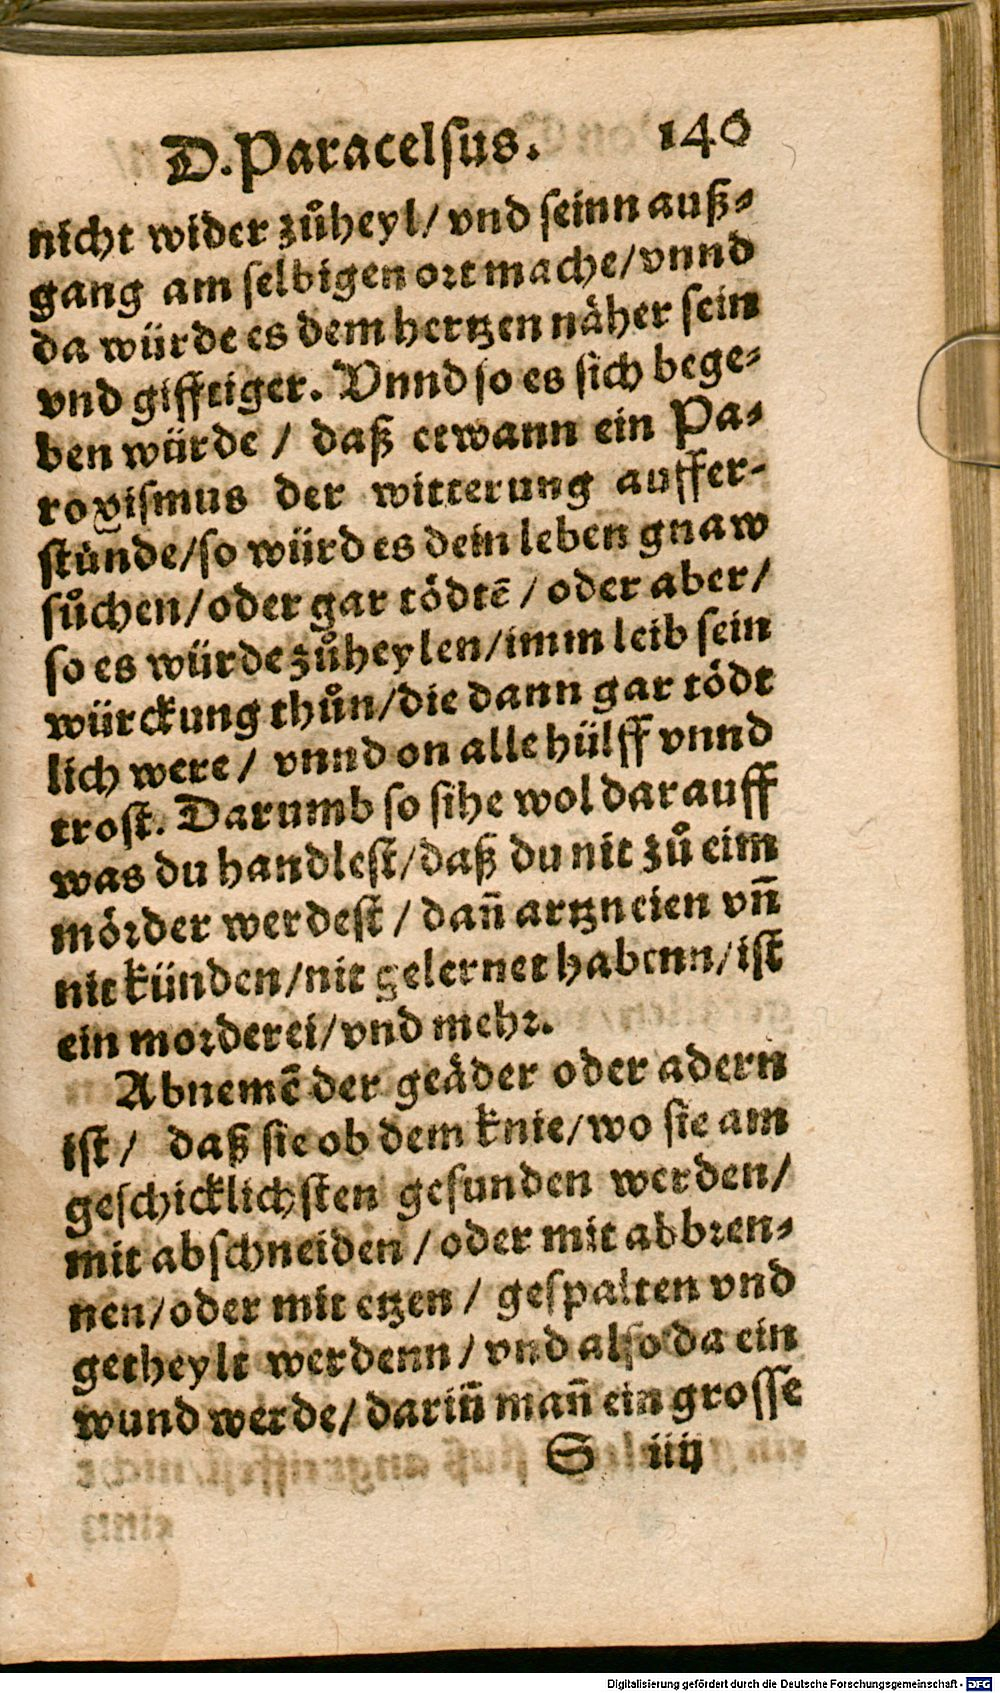 D. Paracelsus. 140
nicht wider zůheyl/ vnd seinn auß⸗
gang am selbigen ort mache/ vnnd
da würde es dem hertzen näher sein
vnd gifftiger. Vnnd so es sich bege⸗
ben würde / daß etwann ein Pa⸗
roxismus der witterung auffer⸗
stünde/ so würd es dein leben gnaw
sůchen/ oder gar tödtē / oder aber/
so es würde zůheylen/ imm leib sein
würckung thůn/ die dann gar tödt
lich were / vnnd on alle hülff vnnd
trost. Darumb so sihe wol darauff
was du handlest/ daß du nit zů eim
mörder werdest / dañ artzneien vñ
nit künden/ nit gelernet habenn/ ist
ein morderei/ vnd mehr.
Abnemē der geäder oder adern
ist / daß sie ob dem knie/ wo sie am
geschicklichsten gefunden werden/
mit abschneiden / oder mit abbren⸗
nen/ oder mit etzen / gespalten vnd
getheylt werdenn / vnd also da ein
wund werde/ dariñ mañ ein grosse
S iiij
Digitalisierung gefördert durch die Deutsche Forschungsgemeinschaft - DFG